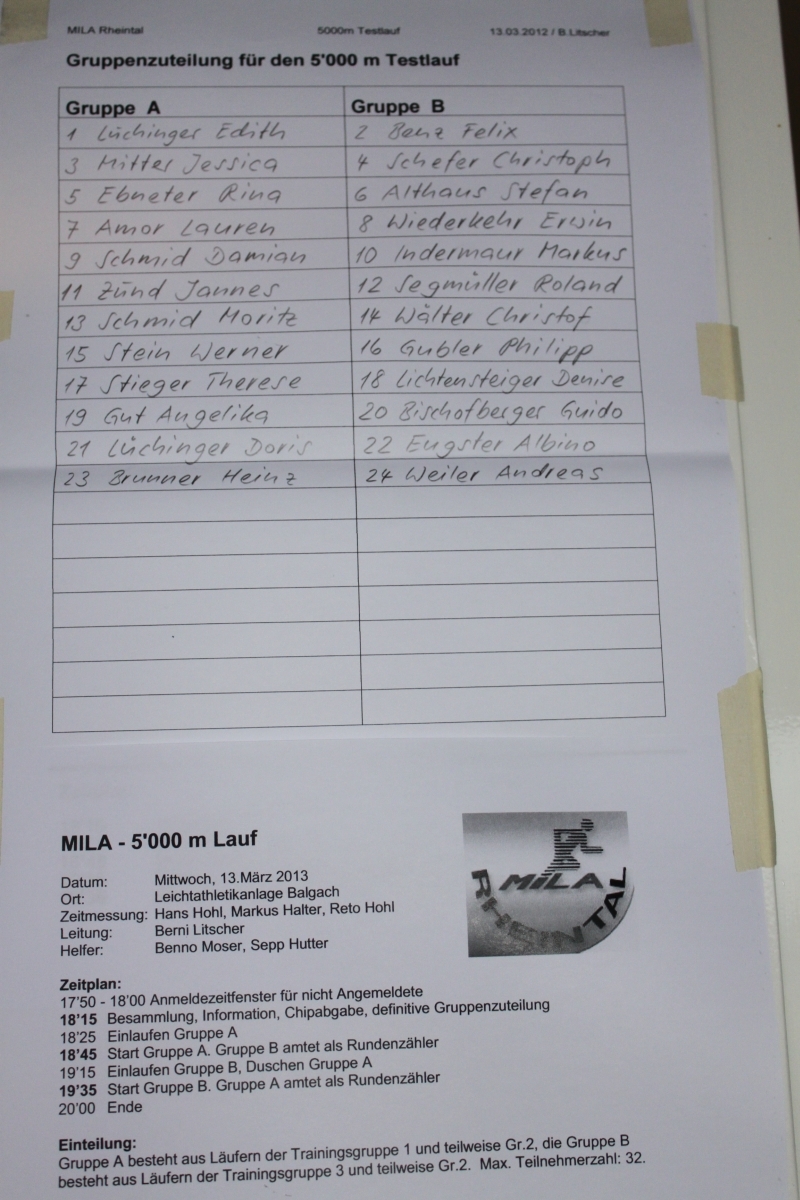 MILA Rheintal 5000m Testlauf 13.03.2012 / B.Litscher
Gruppenzuteilung für den 5'000 m Testlauf
Gruppe A Gruppe B
1 Lüchinger Edith 2 Benz Felix
3 Mitter Jessica 4 Schefer Christoph
5 Ebneter Rina 6 Althaus Stefan
7 Amor Lauren 8 Wiederkehr Erwin
9 Schmid Damian 10 Indermaur Markus
11 Zünd Jannes 12 Segmüller Roland
13 Schmid Moritz 14 Wälter Christof
15 Stein Werner 16 Gubler Philipp
17 Stieger Therese 18 Lichtensteiger Denise
19 Gut Angelika 20 Bischofberger Guido
21 Lüchinger Doris 22 Eugster Albino
23 Brunner Heinz 24 Weiler Andreas
MILA - 5'000 m Lauf
MILA
RHEINTAL
Datum: Mittwoch, 13.März 2013
Ort: Leichtathletikanlage Balgach
Zeitmessung: Hans Hohl, Markus Halter, Reto Hohl
Leitung: Berni Litscher
Helfer: Benno Moser, Sepp Hutter
Zeitplan:
17'50 - 18'00 Anmeldezeitfenster für nicht Angemeldete
18'15 Besammlung, Information, Chipabgabe, definitive Gruppenzuteilung
18'25 Einlaufen Gruppe A
18'45 Start Gruppe A. Gruppe B amtet als Rundenzähler
19'15 Einlaufen Gruppe B, Duschen Gruppe A
19'35 Start Gruppe B. Gruppe A amtet als Rundenzähler
20'00 Ende
Einteilung:
Gruppe A besteht aus Läufern der Trainingsgruppe 1 und teilweise Gr.2, die Gruppe B
besteht aus Läufern der Trainingsgruppe 3 und teilweise Gr.2. Max. Teilnehmerzahl: 32.